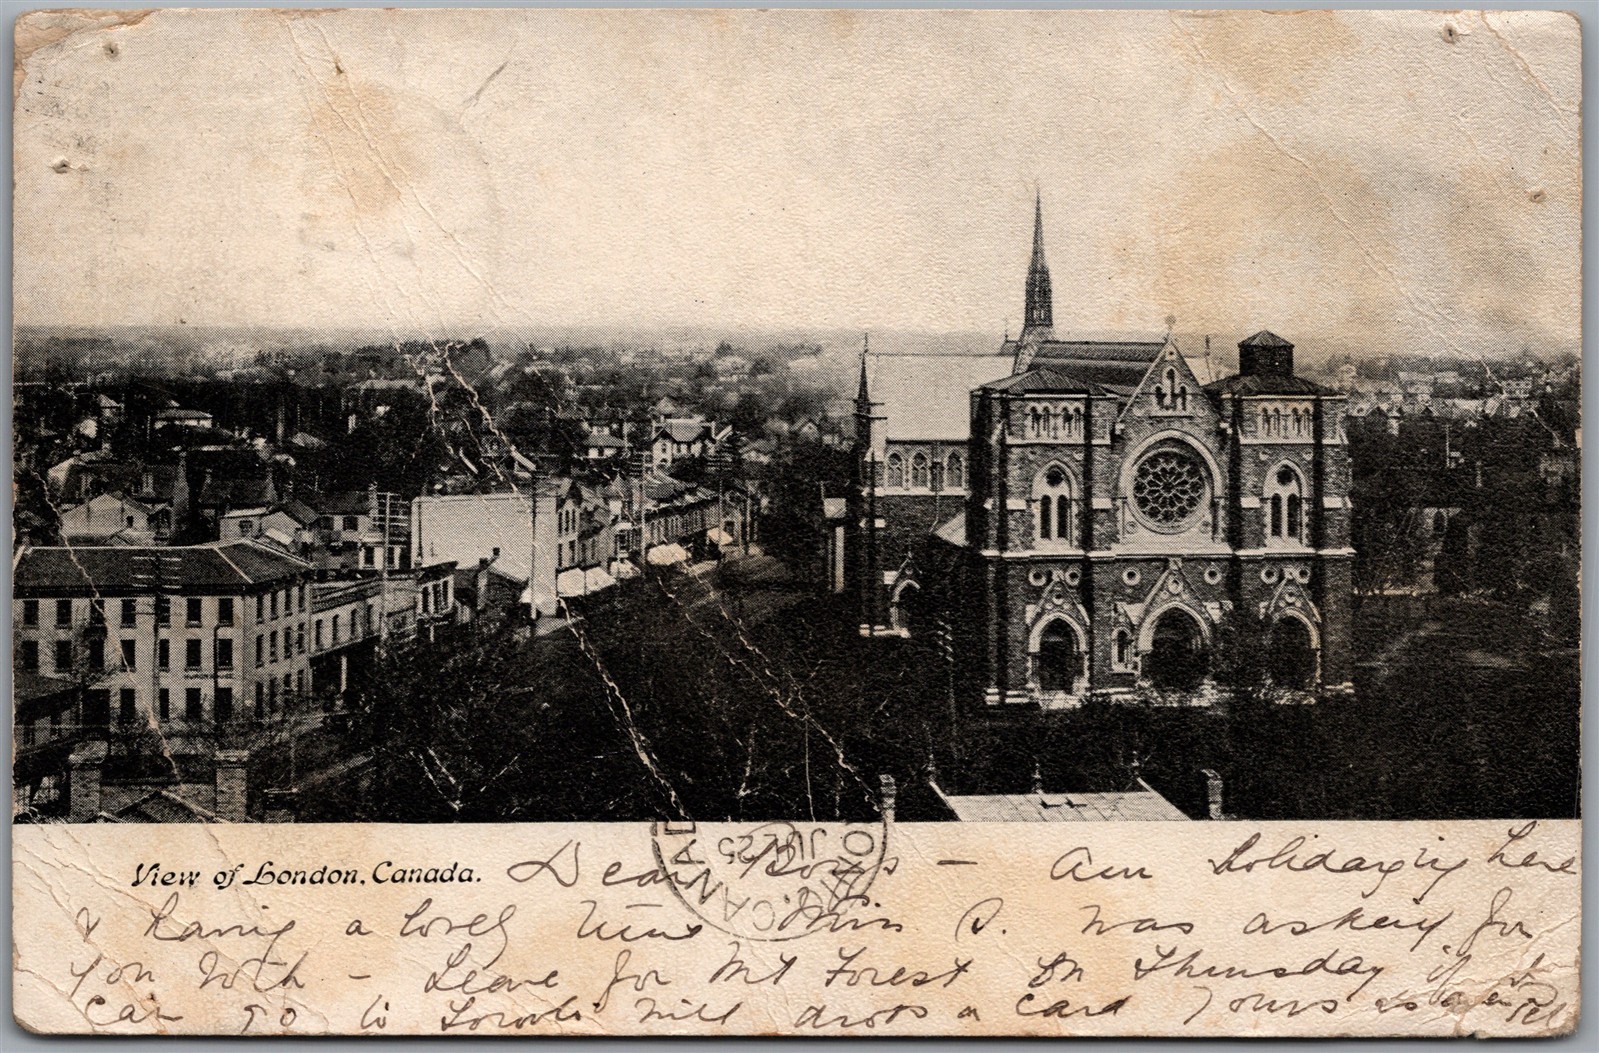 View of London, Canada. Dear Boys - Am holidaying here
& having a lovely time Miss S. was asking for
you both - Leave for Mt Forest on Thursday if I
can go to Toronto will drop a card Yours as ever
CANADA
JUL 25